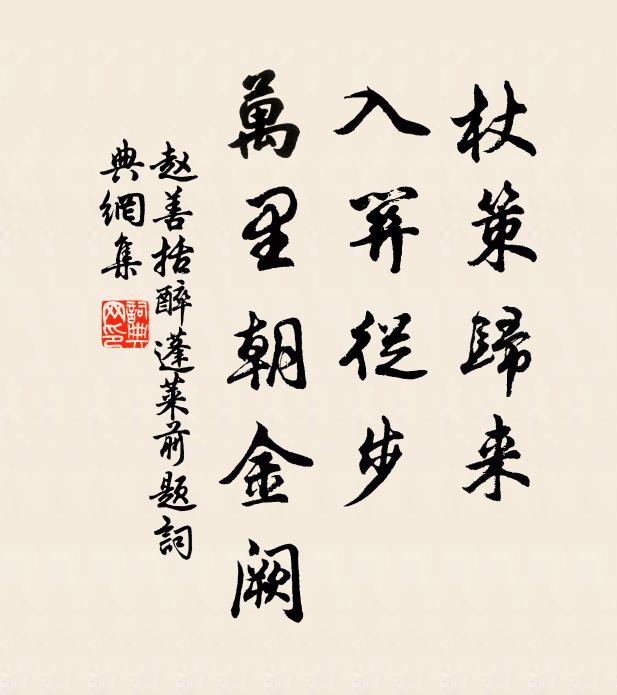 杖策歸来
入關從步
萬里朝金闕
赵善括醉蓬萊前题詞
典網集
詞典网印